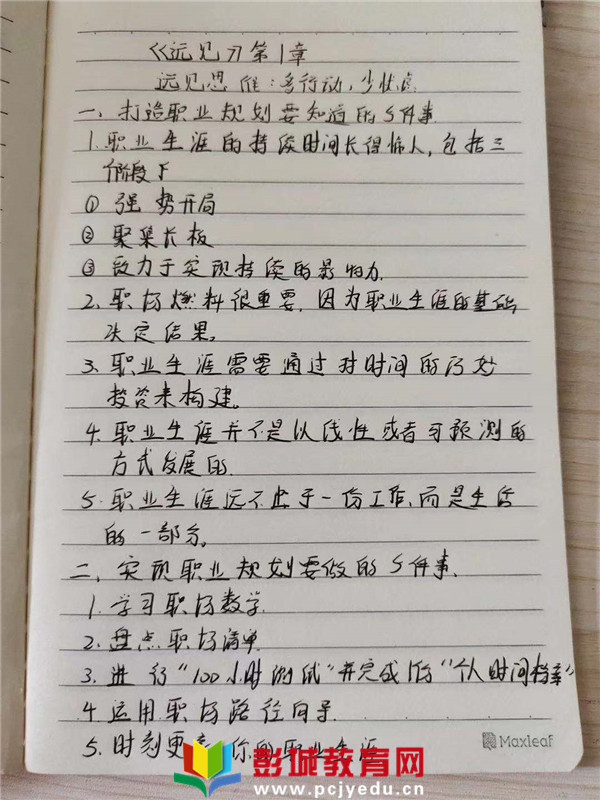 《远见》第1章
远见思维:多行动,少忧虑
一、打造职业规划要知道的5件事
1.职业生涯的持续时间长得惊人,包括三
阶段下
① 强势开局
② 聚焦长板
③ 致力于实现持续的影响力.
2.职场燃料很重要,因为职业生涯的基础
决定结果。
3.职业生涯需要通过对时间的巧妙
投资来构建。
4.职业生涯并不是以线性或者可预测的
方式发展的.
5.职业生涯远不止于一份工作,而是生活
的一部分。
二、实现职业规划要做的5件事.
1.学习职场数学.
2.盘点职场清单
3.进行"100小时测试"并完成你"个人时间档案"
4.运用职场路径向导.
5.时刻更 你的职业生涯
Maxleaf
彭城教育网
www.pcjyedu.cn